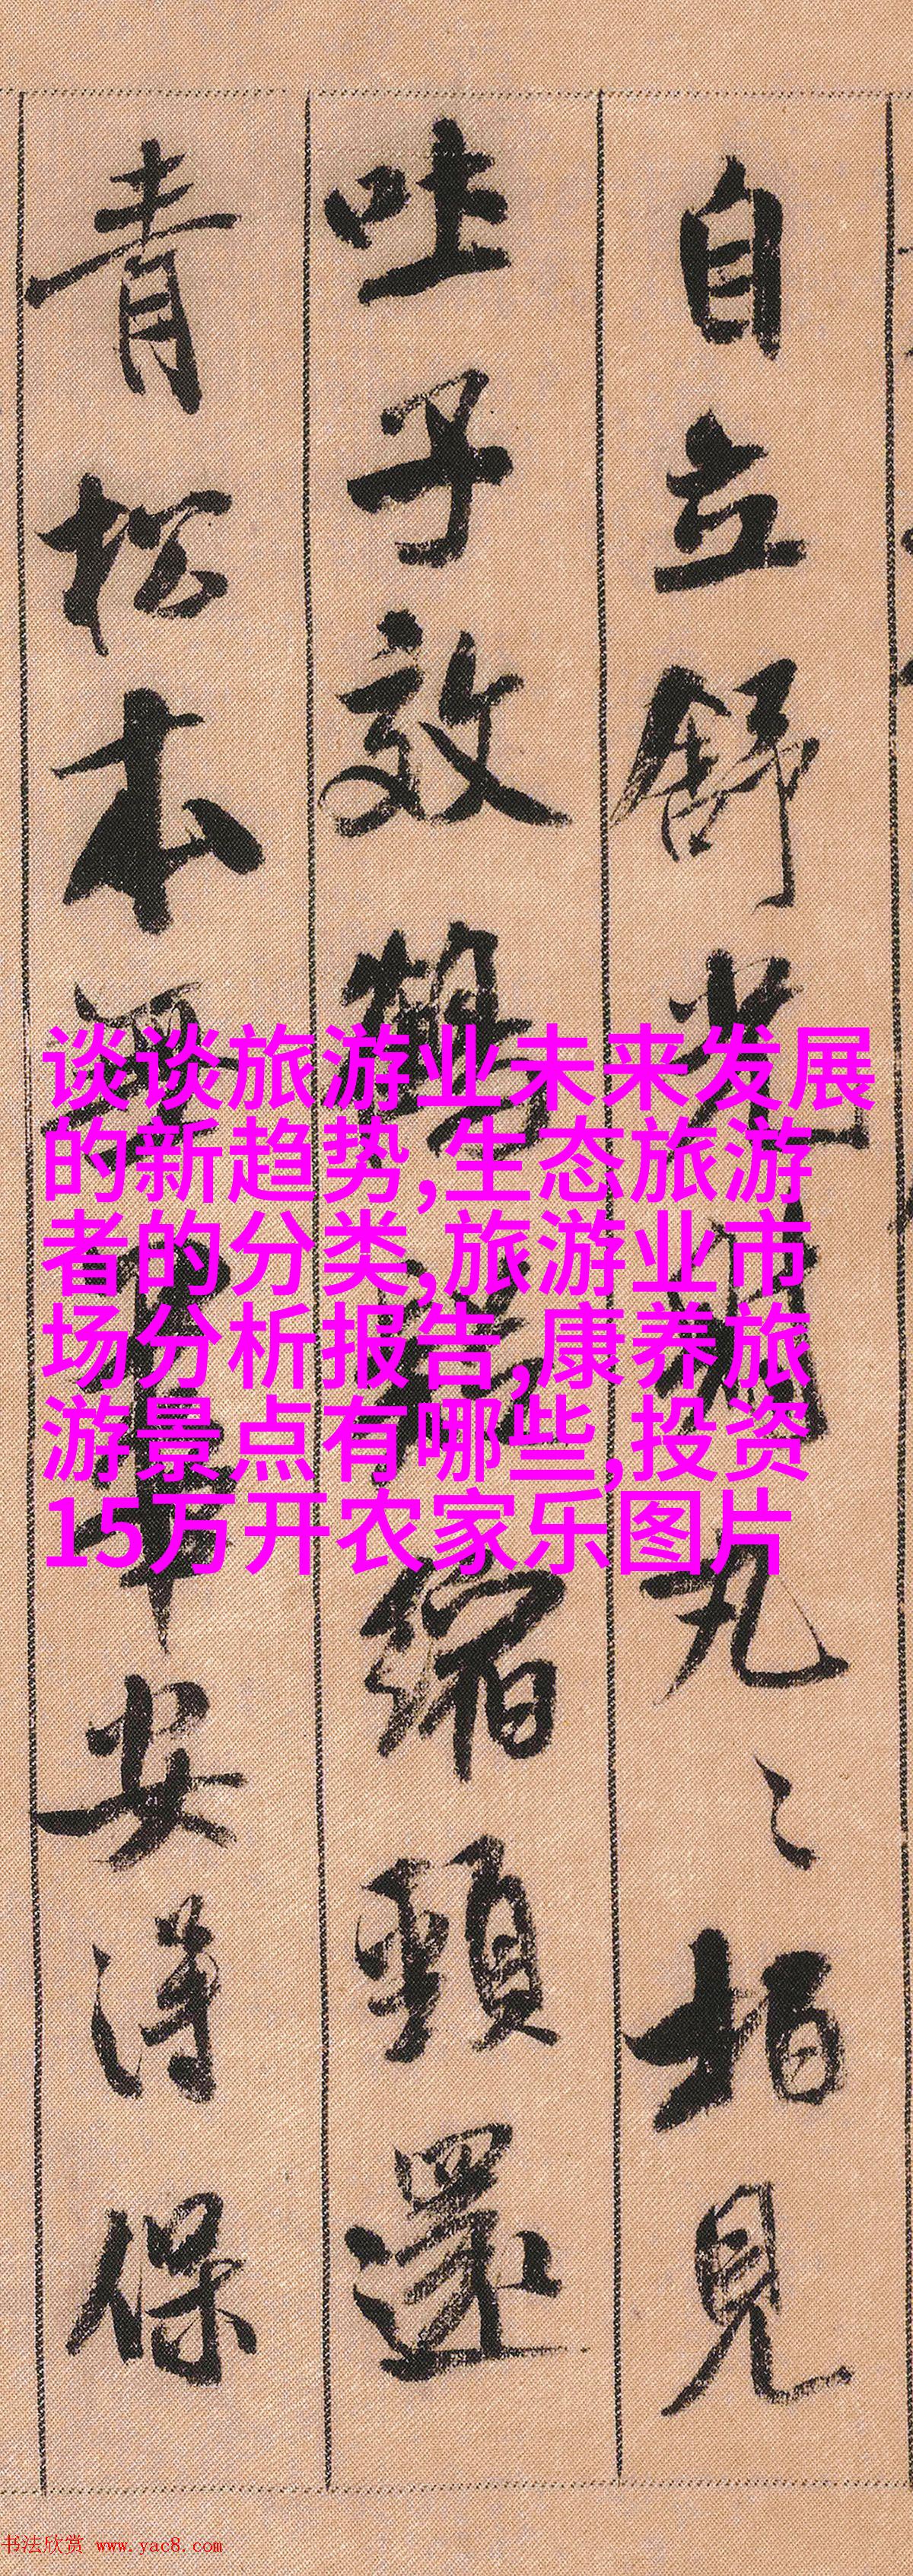 自立舒光丸〻柏見
吐子效鶴縮頸還
青松本安得保
谈谈旅游业未来发展
的新趋势,生态旅游
者的分类,旅游业市
场分析报告,康养旅
游景点有哪些,投资
15万开农家乐图片
书法欣赏 www.yac8.com